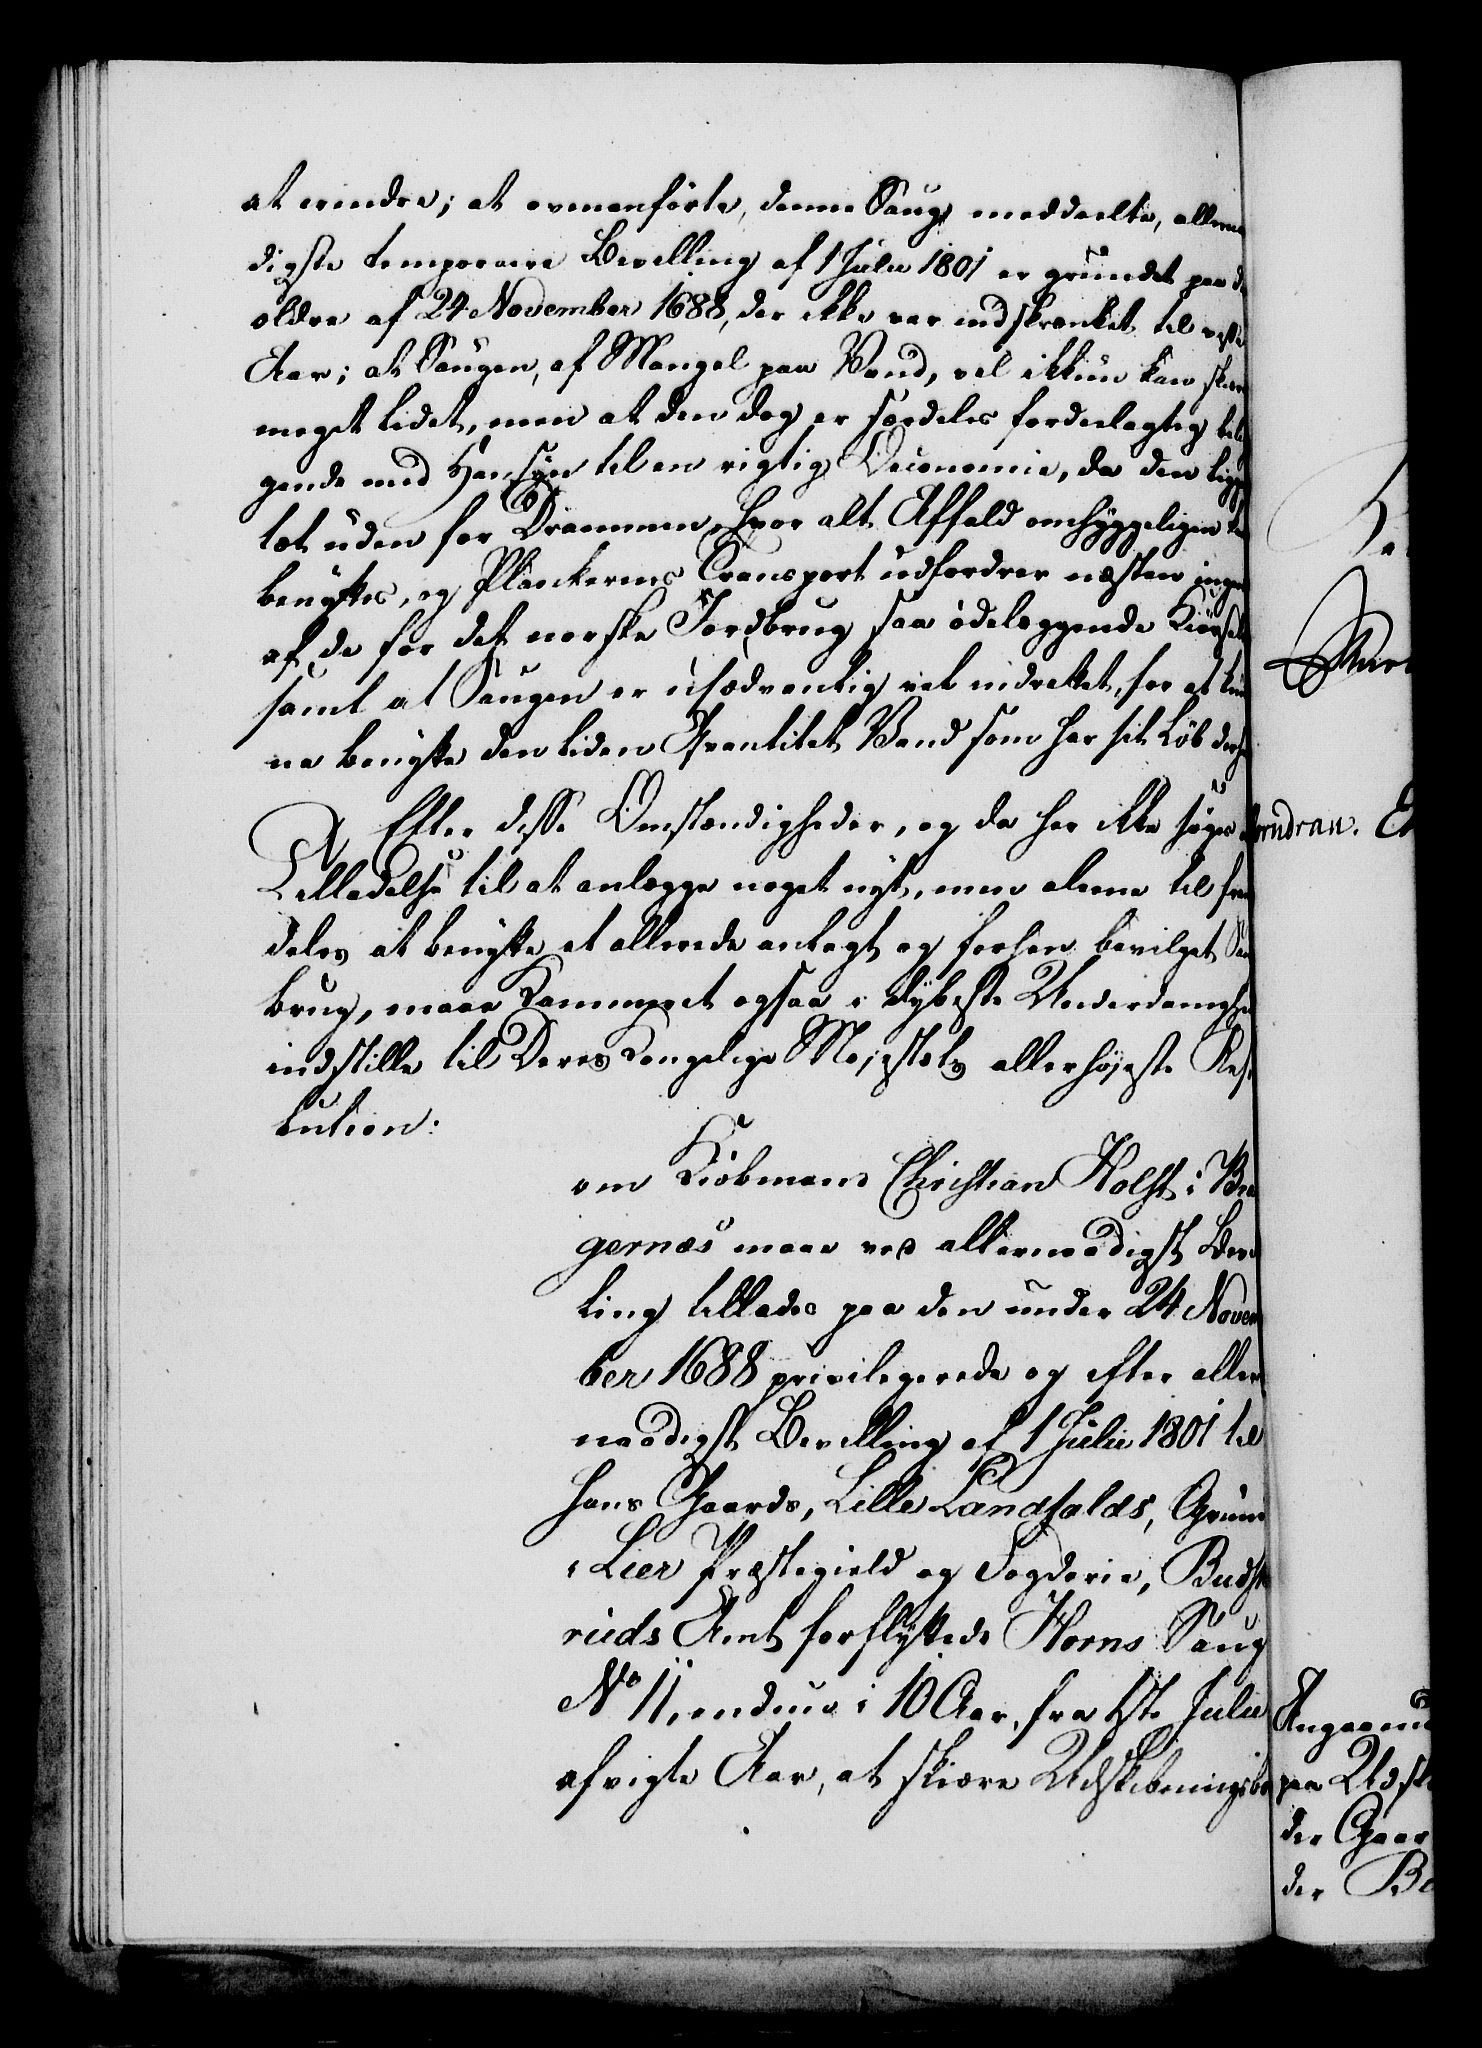 at erindre; at ovenanförte, denne Saug meddeelte, allern
digste temporaire Bevilling af 1 Julii 1801 er grundet paa d
ældre af 24 November 1688, der ikke var indskrænket til visse
Aar; at Saugen, af Mangel paa Vand, vel ikkun kan skiære
meget lidet, men at den dog er særdeles fordeelagtig bele
gende med Hensyn til en rigtig Oeconomie, da den ligger
tæt uden for Drammen, hvor alt Affald omhyggeligen
benyttes, og Plankernes Transport udfordrer næsten ingen
af de for det norske Jordbrug saa ödelæggende Kiörsele
samt at Saugen er usædvanlig vel indrettet, for at kun
ne benytte den liden Qvantitet Vand som har sit Löb der
Efter disse Omstændigheder, og da her ikke söges
Tilladelse til at anlægge noget nyt, men alene til frem
deles at benytte et allerede anlagt og forhen bevilget Sau
brug, maae Kammeret ogsaa i dybeste Underdanighe
indstille til Deres Kongelige Majestæts allerhöjeste Reso
lution:
om Kiöbmand Christian Holst i Bra
gernæs maae ved allernaadigst Bevil
ling tillades paa den under 24 Novem
ber 1688 privilegerede og efter aller
naadigst Bevilling af 1 Julii 1801 til
hans Gaards, Lille Landfalds, Grund
i Lier Præstegield og Fogderie, Budske
ruds Amt forflyttede Horns Saug
No 11, endnu i 10 Aar, fra 1ste Julii
afvigte Aar, at skiære Udskibningsbo
Angaaende
paa Udsk
der Gaar
der Be